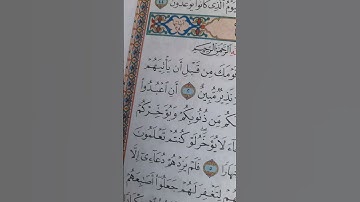 ٱلَّذِى كَانُوا۟ يُوعَدُونَ
ٱلرَّحْمَٰنِ ٱلرَّحِيمِ
قَوْمَكَ مِن قَبْلِ أَن يَأْتِيَهُمْ
نَذِيرٌ مُّبِينٌ ٢ أَنِ ٱعْبُدُوا۟
لَكُم مِّن ذُنُوبِكُمْ وَيُؤَخِّرْكُمْ
لَا يُؤَخَّرُ لَوْ كُنتُمْ تَعْلَمُونَ
فَلَمْ يَزِدْهُمْ دُعَآءِىٓ إِلَّا
لِتَغْفِرَ لَهُمْ جَعَلُوٓا۟ أَصَٰبِعَهُمْ